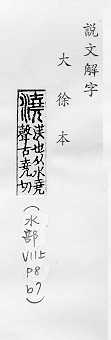 說文解字
大徐本
澆
沃也从水堯
聲古堯切
(水部
VIII上
P8
b7)